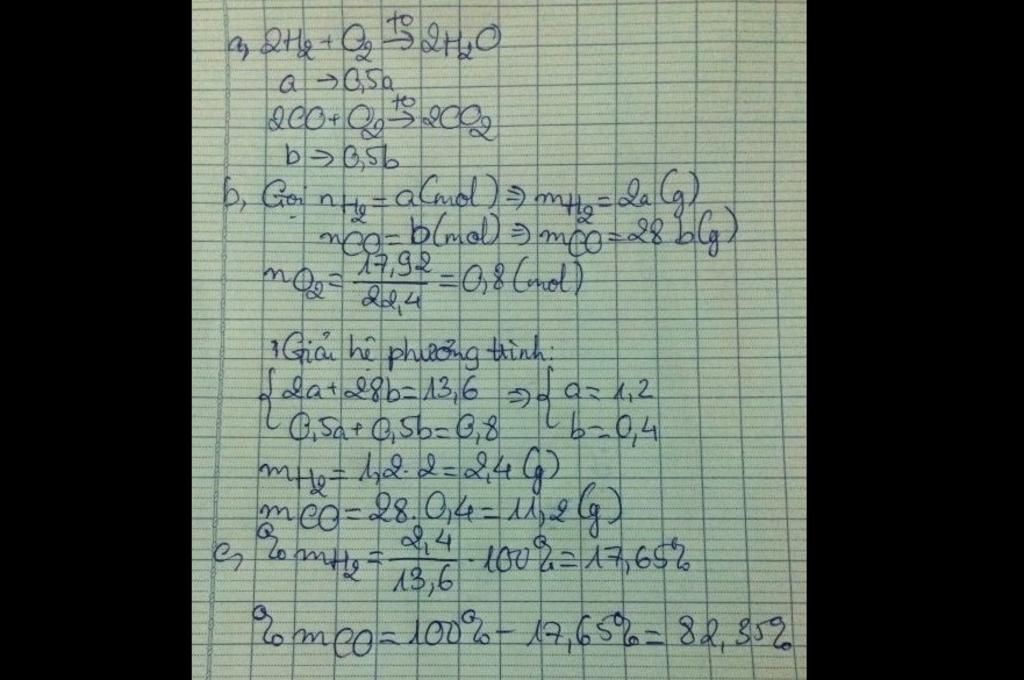 a, 2H₂ + O₂ →t° 2H₂O
a → 0,5a
2CO + O₂ →t° 2CO₂
b → 0,5b
b, Gọi nH₂ = a(mol) ⇒ mH₂ = 2a(g)
nCO = b(mol) ⇒ mCO = 28b(g)
nO₂ = 17,92/22,4 = 0,8(mol)
Giải hệ phương trình:
{ 2a + 28b = 13,6 ⇒ { a = 1,2
0,5a + 0,5b = 0,8 b = 0,4
mH₂ = 1,2 . 2 = 2,4(g)
mCO = 28 . 0,4 = 11,2(g)
c, %mH₂ = 2,4/13,6 . 100% = 17,65%
%mCO = 100% - 17,65% = 82,35%